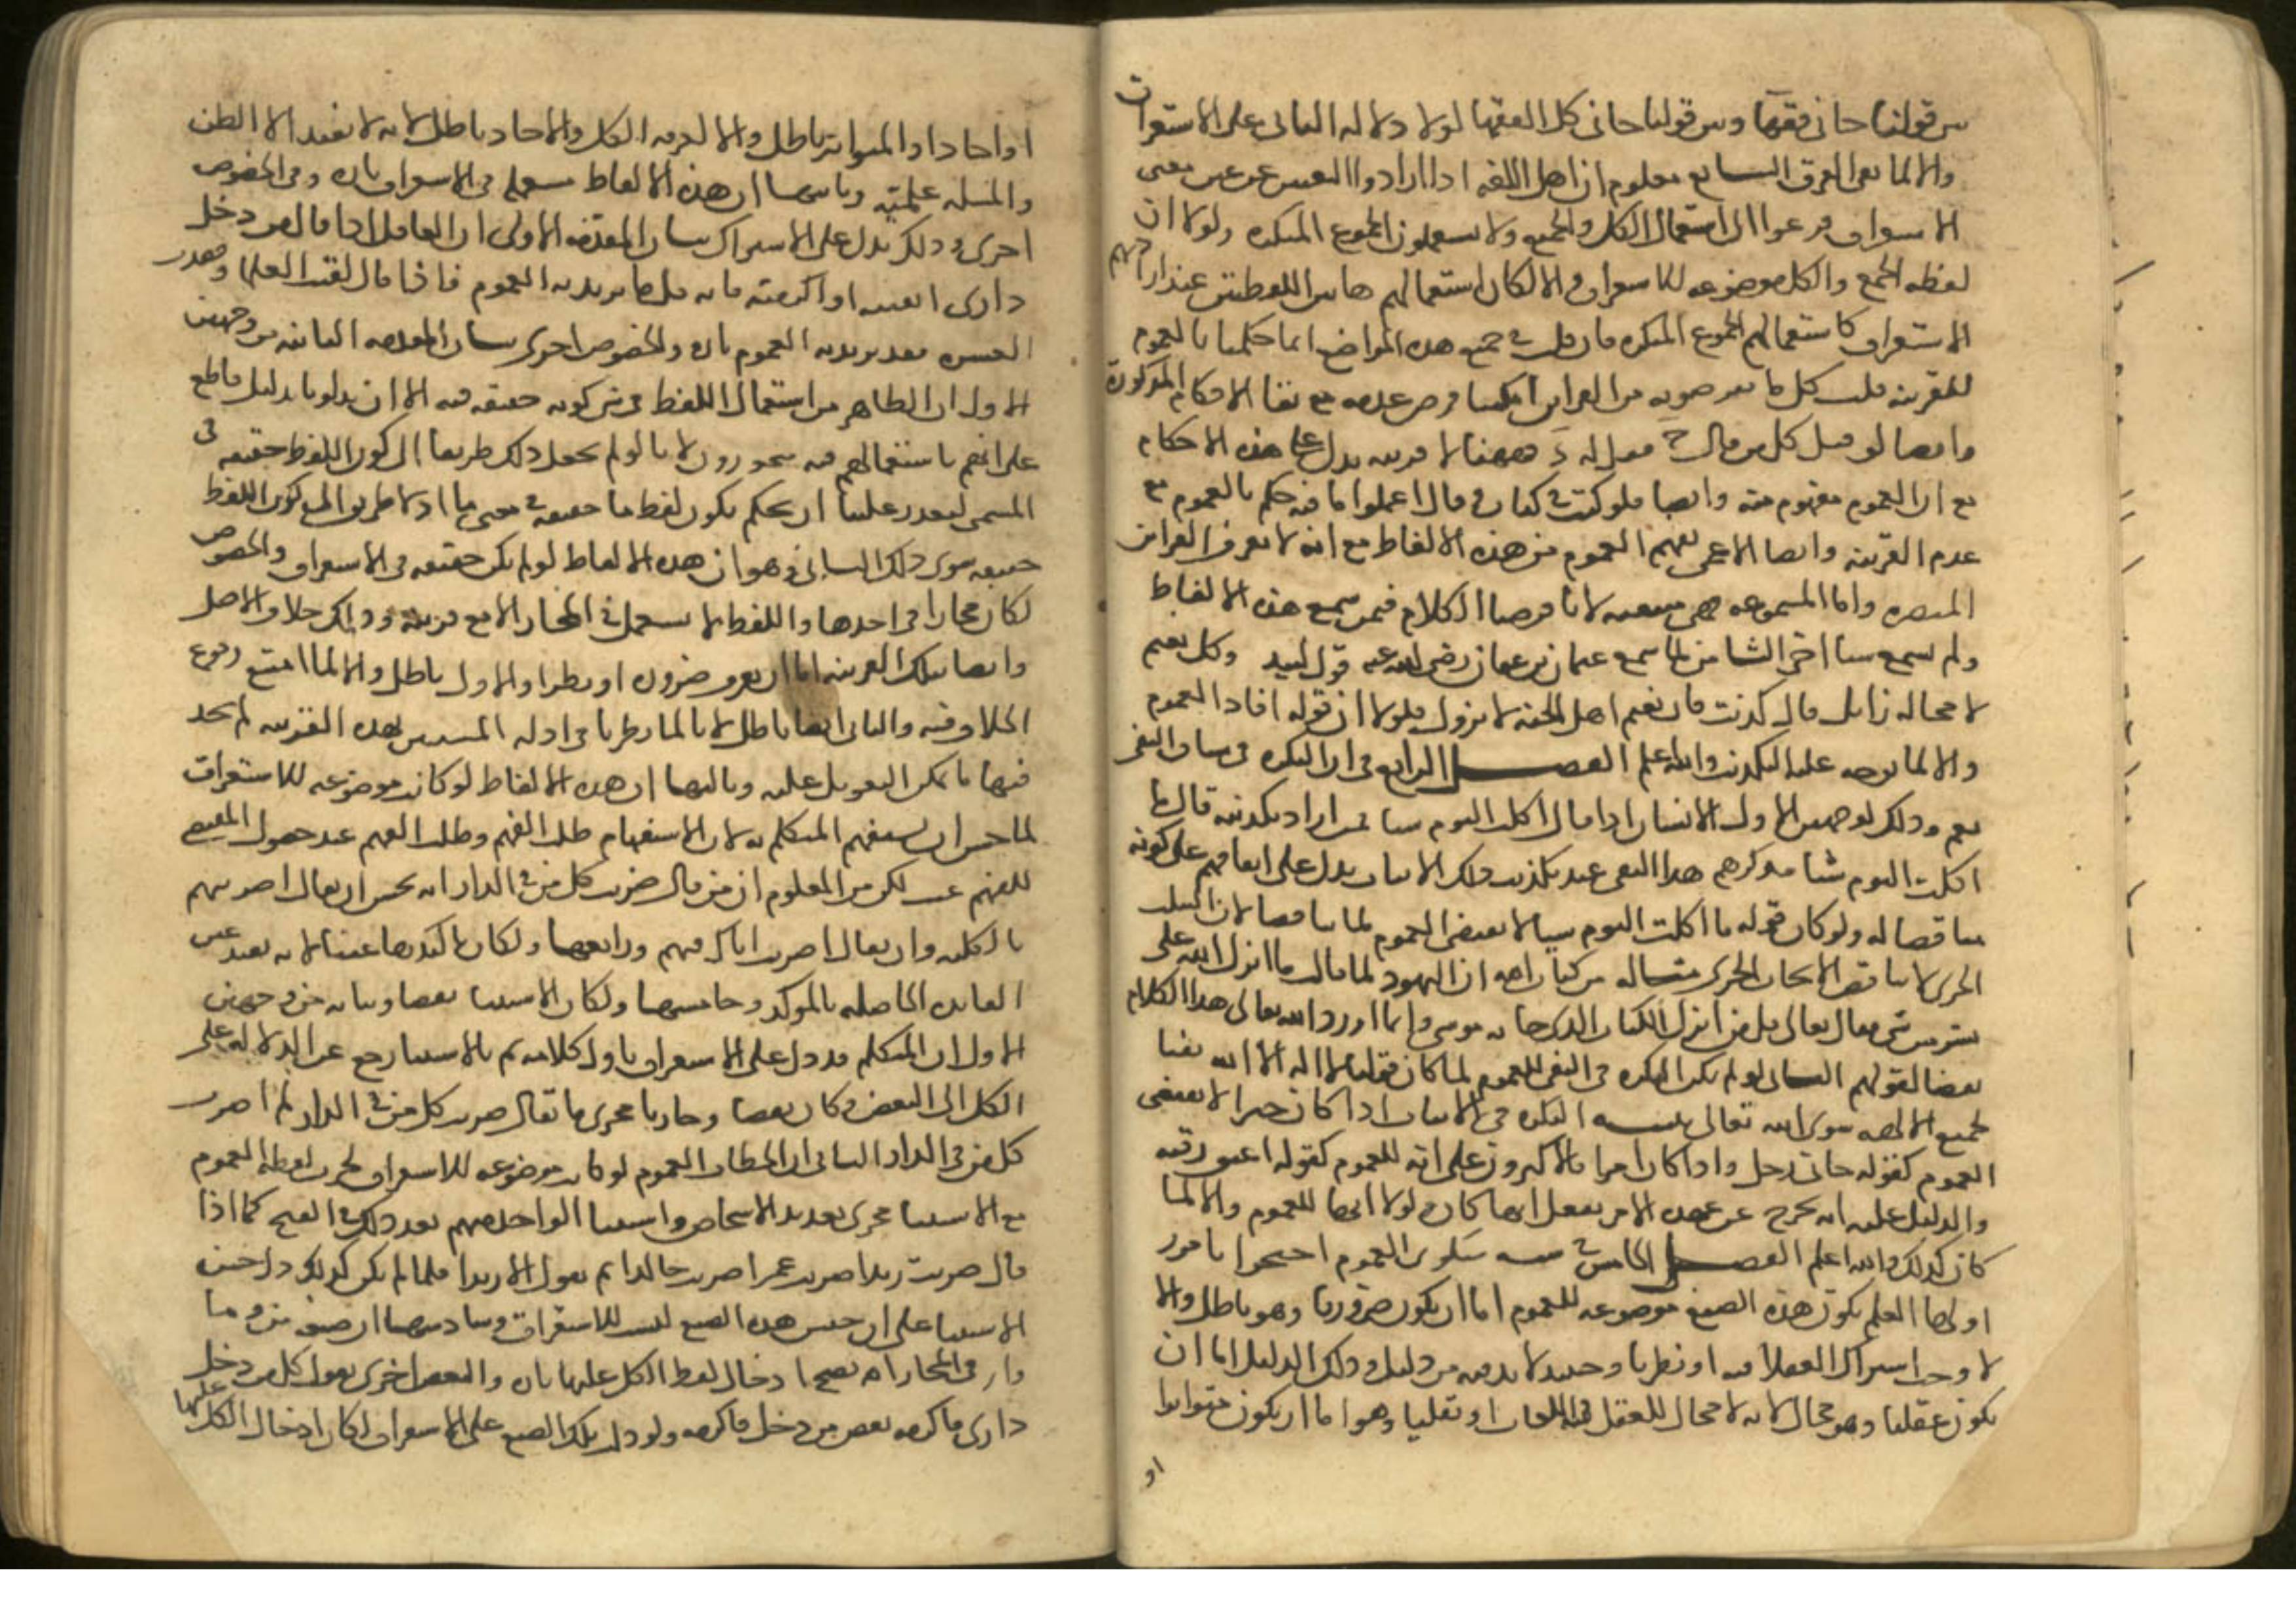 بين قولنا جاني فقهآ وبين قولنا جاني كل الفقها لولا دلالة الثاني على الاستغراق
والا لما بقي الفرق السابع معلوم ان اهل اللغه اذا ارادوا التعبير عن معنى
الاستغراق فزعوا الى استعمال الكل والجميع ولا يستعملون الجموع المنكره ولولا ان
لفظه الجمع والكل موضوعه للاستغراق والا لكان استعمالهم هاتين اللفظتين عند ارادتهم
الاستغراق كاستعمالهم الجموع المنكره فان قيل في جميع هذه المواضع انما حكمنا بالعموم
للقرينه قلت كل ما تفرضونه من القراين امكننا فرض عدمه مع بقا الاحكام المذكورة
وايضا لو قيل كل من قال ج فقل له د فههنا لا قرينه تدل على هذه الاحكام
مع ان العموم مفهوم منه وايضا فلو كتب في كتاب وقال اعملوا بما فيه حكم بالعموم مع
عدم القرينه وايضا الاعمى يفهم العموم من هذه الالفاظ مع انه لا يعرف القراين
المبصره واما المسموعه فهي منتفيه لانا فرضنا الكلام فيمن سمع هذه الالفاظ
ولم يسمع شيا اخر الثامن لما سمع عثمان بن عفان رضي الله عنه قول لبيد وكل نعيم
لا محاله زايل قال كذبت فان نعيم اهل الجنه لا يزول فلولا ان قوله افاد العموم
والا لما توجه عليه التكذيب والله اعلم الفصل الرابع في ان النكره في سياق النفي
تعم وذلك لوجهين الاول الانسان اذا قال اكلت اليوم شيا فمن اراد تكذيبه قال ما
اكلت اليوم شيا فذكرهم هذا النفي عند تكذيب ذلك الاثبات يدل على اتفاقهم على كونه
مناقضا له ولو كان قوله ما اكلت اليوم شيا لا يقتضي العموم لما تناقضا لان السلب
الجزي لا يناقض الايجاب الجزي مثاله من كتاب الله ان اليهود لما قالت ما انزل الله على
بشر من شي فقال تعالى قل من انزل الكتاب الذي جا به موسى وانما اورد الله تعالى هذا الكلام
نقضا لقولهم الثاني لو لم تكن النكره في النفي للعموم لما كان قولنا لا اله الا الله نفيا
لجميع الالهه سوى الله تعالى تنبيه النكره في الاثبات اذا كان خبرا لا يقتضي
العموم كقوله جاني رجل واذا كان امرا فالاكثرون على انه للعموم كقوله اعتق رقبه
والدليل عليه انه يخرج عن عهدة الامر بفعل ايها كان ولولا انها للعموم والا لما
كان كذلك والله اعلم الفصل الخامس في شبه منكري العموم احتجوا بامور
اولها العلم بكون هذه الصيغ موضوعه للعموم اما ان يكون ضروريا وهو باطل والا
لا وجب اشتراك العقلا فيه او نظريا وحينيذ لا بد فيه من دليل وذلك الدليل اما ان
يكون عقليا وهو محال لانه لا مجال للعقل في اللغات او نقليا وهو اما ان يكون متواترا
او
او احادا والمتواتر باطل والا لعرفه الكل والاحاد باطل لانه لا يفيد الا الظن
والمسله علميه وثانيها ان هذه الالفاظ مستعمله في الاستغراق تاره وفي الخصوص
اخرى وذلك يدل على الاشتراك بيان المقدمه الاولى ان القايل اذا قال من دخل
داري اهنته او اكرمته فانه قل ما يريد به العموم فاذا قال لقيت العلما وقصدت
الاول ان الظاهر من استعمال اللفظ في شي كونه حقيقه فيه الا ان يدلونا بدليل قاطع
على انهم باستعمالهم فيه متجوزون لانا لو لم نجعل ذلك طريقا الى كون اللفظ حقيقه في
المسمى لتعذر علينا ان نحكم بكون لفظ ما حقيقه في معنى ما اذ لا طريق الى كون اللفظ
حقيقه سوى ذلك الثاني وهو ان هذه الالفاظ لو لم تكن حقيقه في الاستغراق والخصوص
لكان مجازا في احدهما واللفظ لا يستعمل في المجاز الا مع قرينه وذلك خلاف الاصل
وايضا فتلك القرينه اما ان تعرف ضروره او نظرا والاول باطل والا لما امتنع وقوع
الخلاف فيه والثاني ايضا باطل لانا لما نظرنا في ادله المثبتين لهذه القرينه لم نجد
فيها ما يمكن التعويل عليه وثالثها ان هذه الالفاظ لو كانت موضوعه للاستغراق
لما حسن ان يستفهم المتكلم به لان الاستفهام طلب الفهم وطلب الفهم عند حصول المقتضي
للفهم عبث لكن من المعلوم ان من قال ضربت كل من في الدار انه يحسن ان يقال اضربتهم
بالكليه وان يقال اضربت اباك فيهم ورابعها ولكان تاكيدها عبثا لانه يفيد عين
الفايده الحاصله بالموكد وخامسها ولكان الاستثنا نقضا وبيانه من وجهين
الاول ان المتكلم قد دل على الاستغراق باول كلامه ثم بالاستثنا رجع عن الدلاله على
الكل الى البعض فكان نقضا وجاريا مجرى ما يقال ضربت كل من في الدار لم اضرب
كل من في الدار الثاني ان الفاظ العموم لو كانت موضوعه للاستغراق لجرت لفظه العموم
مع الاستثنا مجرى تعديد الاشخاص واستثنا الواحد منهم بعد ذلك في القبح كما اذا
قال ضربت زيدا ضربت عمرا ضربت خالدا ثم يقول الا زيدا فلما لم يكن كذلك دل حسن
الاستثنا على ان جنس هذه الصيغ ليست للاستغراق وسادسها ان صيغه من وما
واي في المجازاه يصح ادخال لفظ الكل عليها تاره والبعض اخرى يقول كل من دخل
داري فاكرمه بعض من دخل فاكرمه ولو دلت تلك الصيغ على الاستغراق لكان ادخال الكل عليها